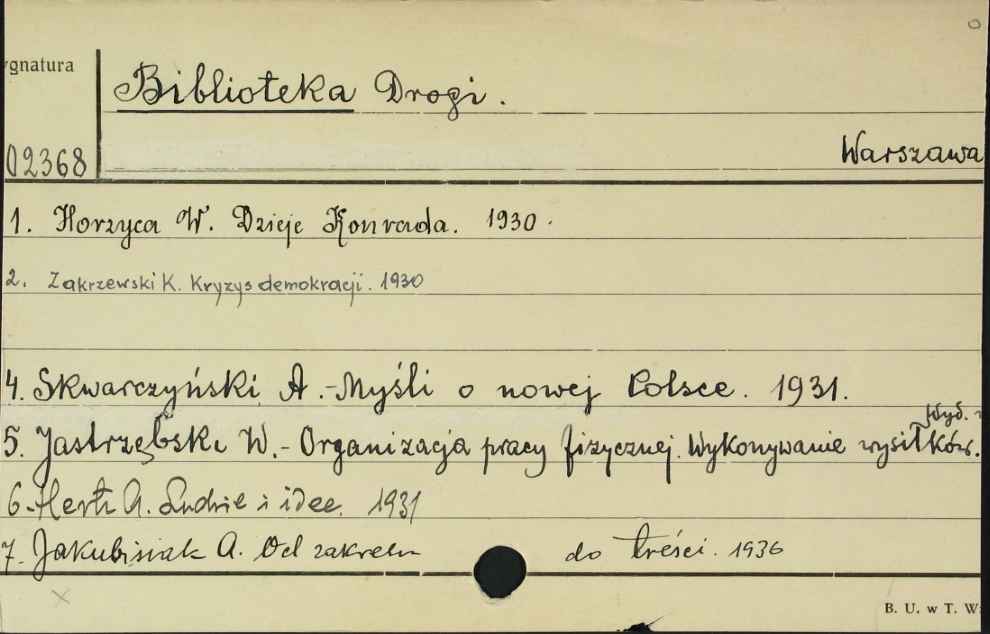 ygnatura
Biblioteka Drogi.
02368
Warszawa
1. Horzyca W. Dzieje Konrada. 1930.
2. Zakrzewski K. Kryzys demokracji. 1930
4. Skwarczyński A. - Myśli o nowej Polsce. 1931.
Wyd.
5. Jastrzębski W. - Organizacja pracy fizycznej. Wykonywanie wysiłków.
6. Hertz A. Ludzie i idee. 1931
7. Jakubisiak A. Od zakresu do treści. 1936
B. U. w T. W: